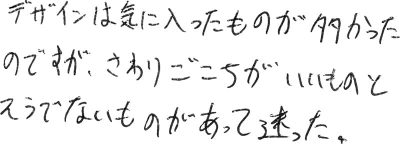 デザインは気に入ったものが多かった
のですが、さわりごこちがいいものと
そうでないものがあって迷った。